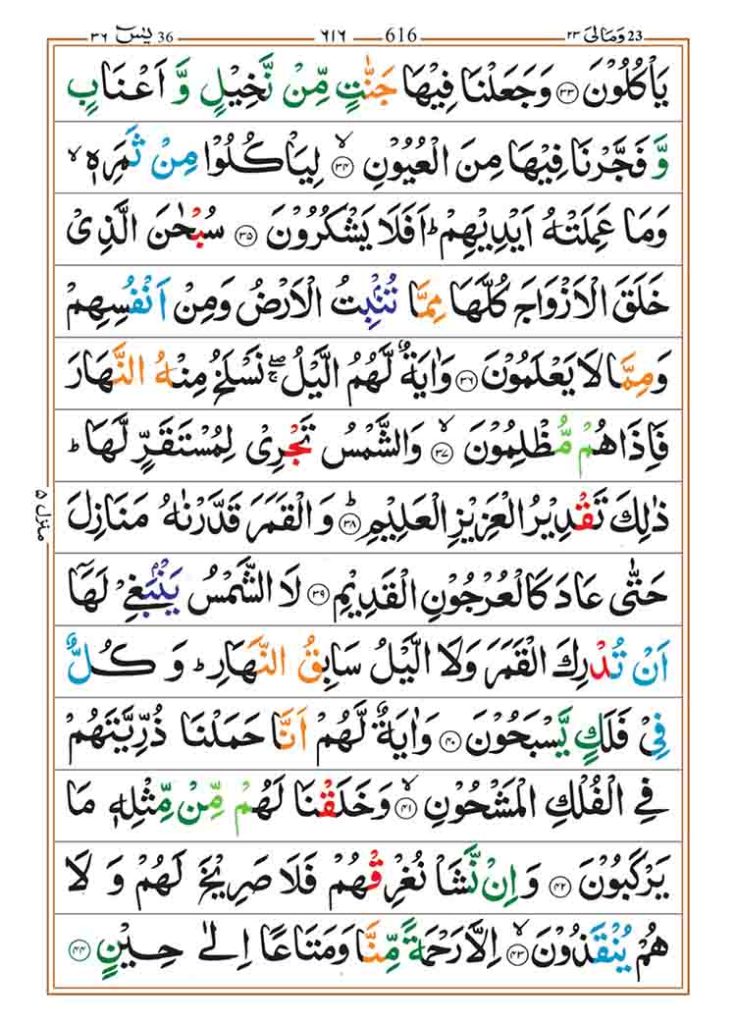 36 يٰسٓ ٣٦ — ٦١٦ — 616 — 23 وَمَالِيَ ٢٣
يَاْكُلُوْنَ ۝٣٣ وَجَعَلْنَا فِيْهَا جَنّٰتٍ مِّنْ نَّخِيْلٍ وَّ اَعْنَابٍ
وَّ فَجَّرْنَا فِيْهَا مِنَ الْعُيُوْنِ ۝٣٤ۙ لِيَاْكُلُوْا مِنْ ثَمَرِهٖ ۙ
وَمَا عَمِلَتْهُ اَيْدِيْهِمْ ؕ اَفَلَا يَشْكُرُوْنَ ۝٣٥ سُبْحٰنَ الَّذِيْ
خَلَقَ الْاَزْوَاجَ كُلَّهَا مِمَّا تُنْۢبِتُ الْاَرْضُ وَمِنْ اَنْفُسِهِمْ
وَمِمَّا لَا يَعْلَمُوْنَ ۝٣٦ وَاٰيَةٌ لَّهُمُ الَّيْلُ ۖۚ نَسْلَخُ مِنْهُ النَّهَارَ
فَاِذَا هُمْ مُّظْلِمُوْنَ ۝٣٧ۙ وَالشَّمْسُ تَجْرِيْ لِمُسْتَقَرٍّ لَّهَا ؕ
ذٰلِكَ تَقْدِيْرُ الْعَزِيْزِ الْعَلِيْمِ ۝٣٨ؕ وَالْقَمَرَ قَدَّرْنٰهُ مَنَازِلَ
حَتّٰى عَادَ كَالْعُرْجُوْنِ الْقَدِيْمِ ۝٣٩ لَا الشَّمْسُ يَنْۢبَغِيْ لَهَاۤ
اَنْ تُدْرِكَ الْقَمَرَ وَلَا الَّيْلُ سَابِقُ النَّهَارِ ؕ وَ كُلٌّ
فِيْ فَلَكٍ يَّسْبَحُوْنَ ۝٤٠ وَاٰيَةٌ لَّهُمْ اَنَّا حَمَلْنَا ذُرِّيَّتَهُمْ
فِي الْفُلْكِ الْمَشْحُوْنِ ۝٤١ۙ وَخَلَقْنَا لَهُمْ مِّنْ مِّثْلِهٖ مَا
يَرْكَبُوْنَ ۝٤٢ وَاِنْ نَّشَاْ نُغْرِقْهُمْ فَلَا صَرِيْخَ لَهُمْ وَ لَا
هُمْ يُنْقَذُوْنَ ۝٤٣ۙ اِلَّا رَحْمَةً مِّنَّا وَمَتَاعًا اِلٰى حِيْنٍ ۝٤٤
منزل ٥